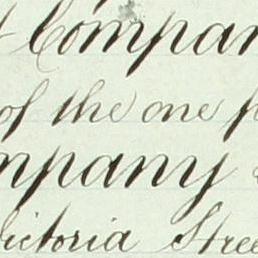 Compan
of the one p
mpany
Victoria Stree